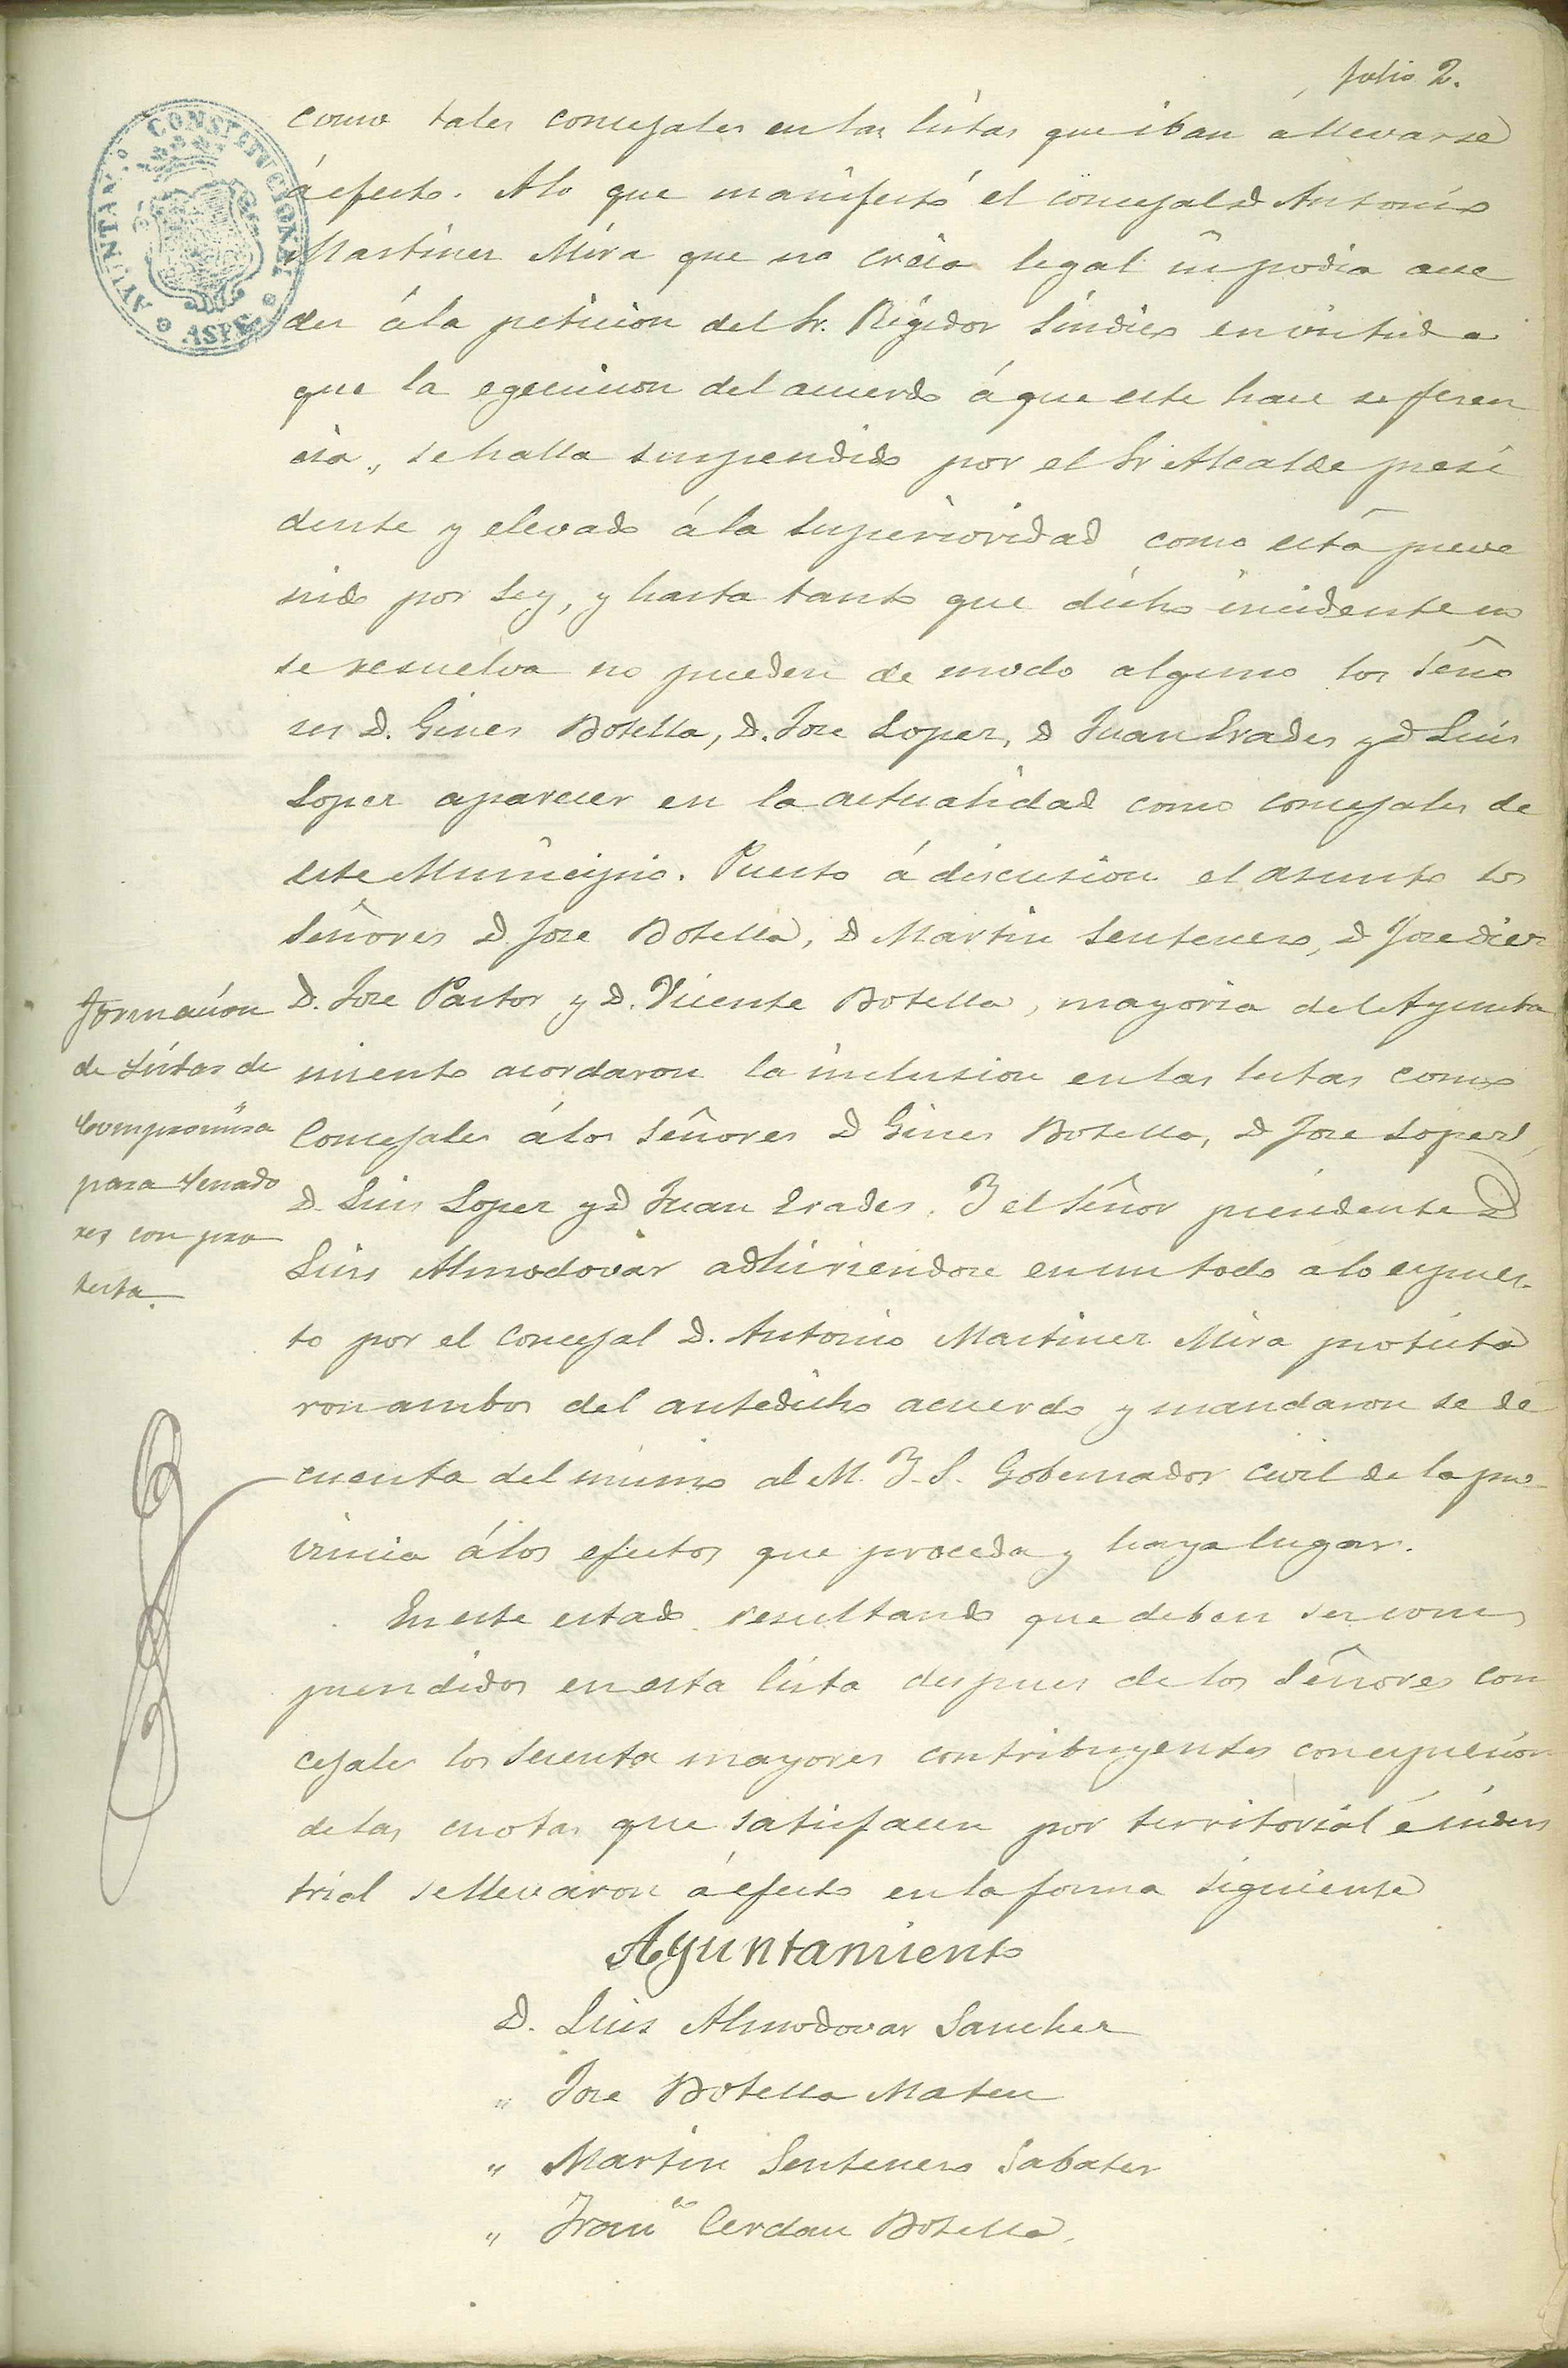 folio 2.
AYUNTAMTO CONSTITUCIONAL
ASPE
como tales concejales en las listas que iban á llevarse
á efecto. A lo que manifestó el concejal D Antonio
Martinez Mira que no creia legal ni podia acce
der á la peticion del Sr. Regidor Sindico en virtud a
que la egecucion del acuerdo á que este hace referen
cia, se halla suspendido por el Sr Alcalde presi
dente y elevado á la superioridad como está preve
nido por ley, y hasta tanto que dicho incidente no
se resuelva no pueden de modo alguno los Seño
res D. Gines Botella, D. Jose Lopez, D Juan Erades y D Luis
Lopez aparecer en la actualidad como concejales de
este Municipio. Puesto á discusion el asunto los
Señores D Jose Botella, D Martin Sentenero, D Jose Diez
D. Jose Pastor y D. Vicente Botella, mayoria del Ayunta
miento acordaron la inclusion en las listas como
Concejales á los Señores D Gines Botella, D Jose Lopez,
D Luis Lopez y D Juan Erades. Y el Señor presidente D
Luis Almodovar adhiriendose en un todo a lo espues-
to por el Concejal D. Antonio Martinez Mira protesta
ron ambos del antedicho acuerdo y mandaron se dé
cuenta del mismo al M. Y. S. Gobernador civil de la pro-
vincia á los efectos que proceda y haya lugar.
En este estado resultando que deben ser com
prendidos en esta lista despues de los Señores con
cejales los sesenta mayores contribuyentes con espresion
de las cuotas que satisfacen por territorial é indus
trial se llevaron á efecto en la forma siguiente
Formacion
de listas de
Compromisa
para Senado
res con pro
testa.
Ayuntamiento
D. Luis Almodovar Sanchez
" Jose Botella Mateu
" Martin Sentenero Sabater
" Franco Cerdan Botella.